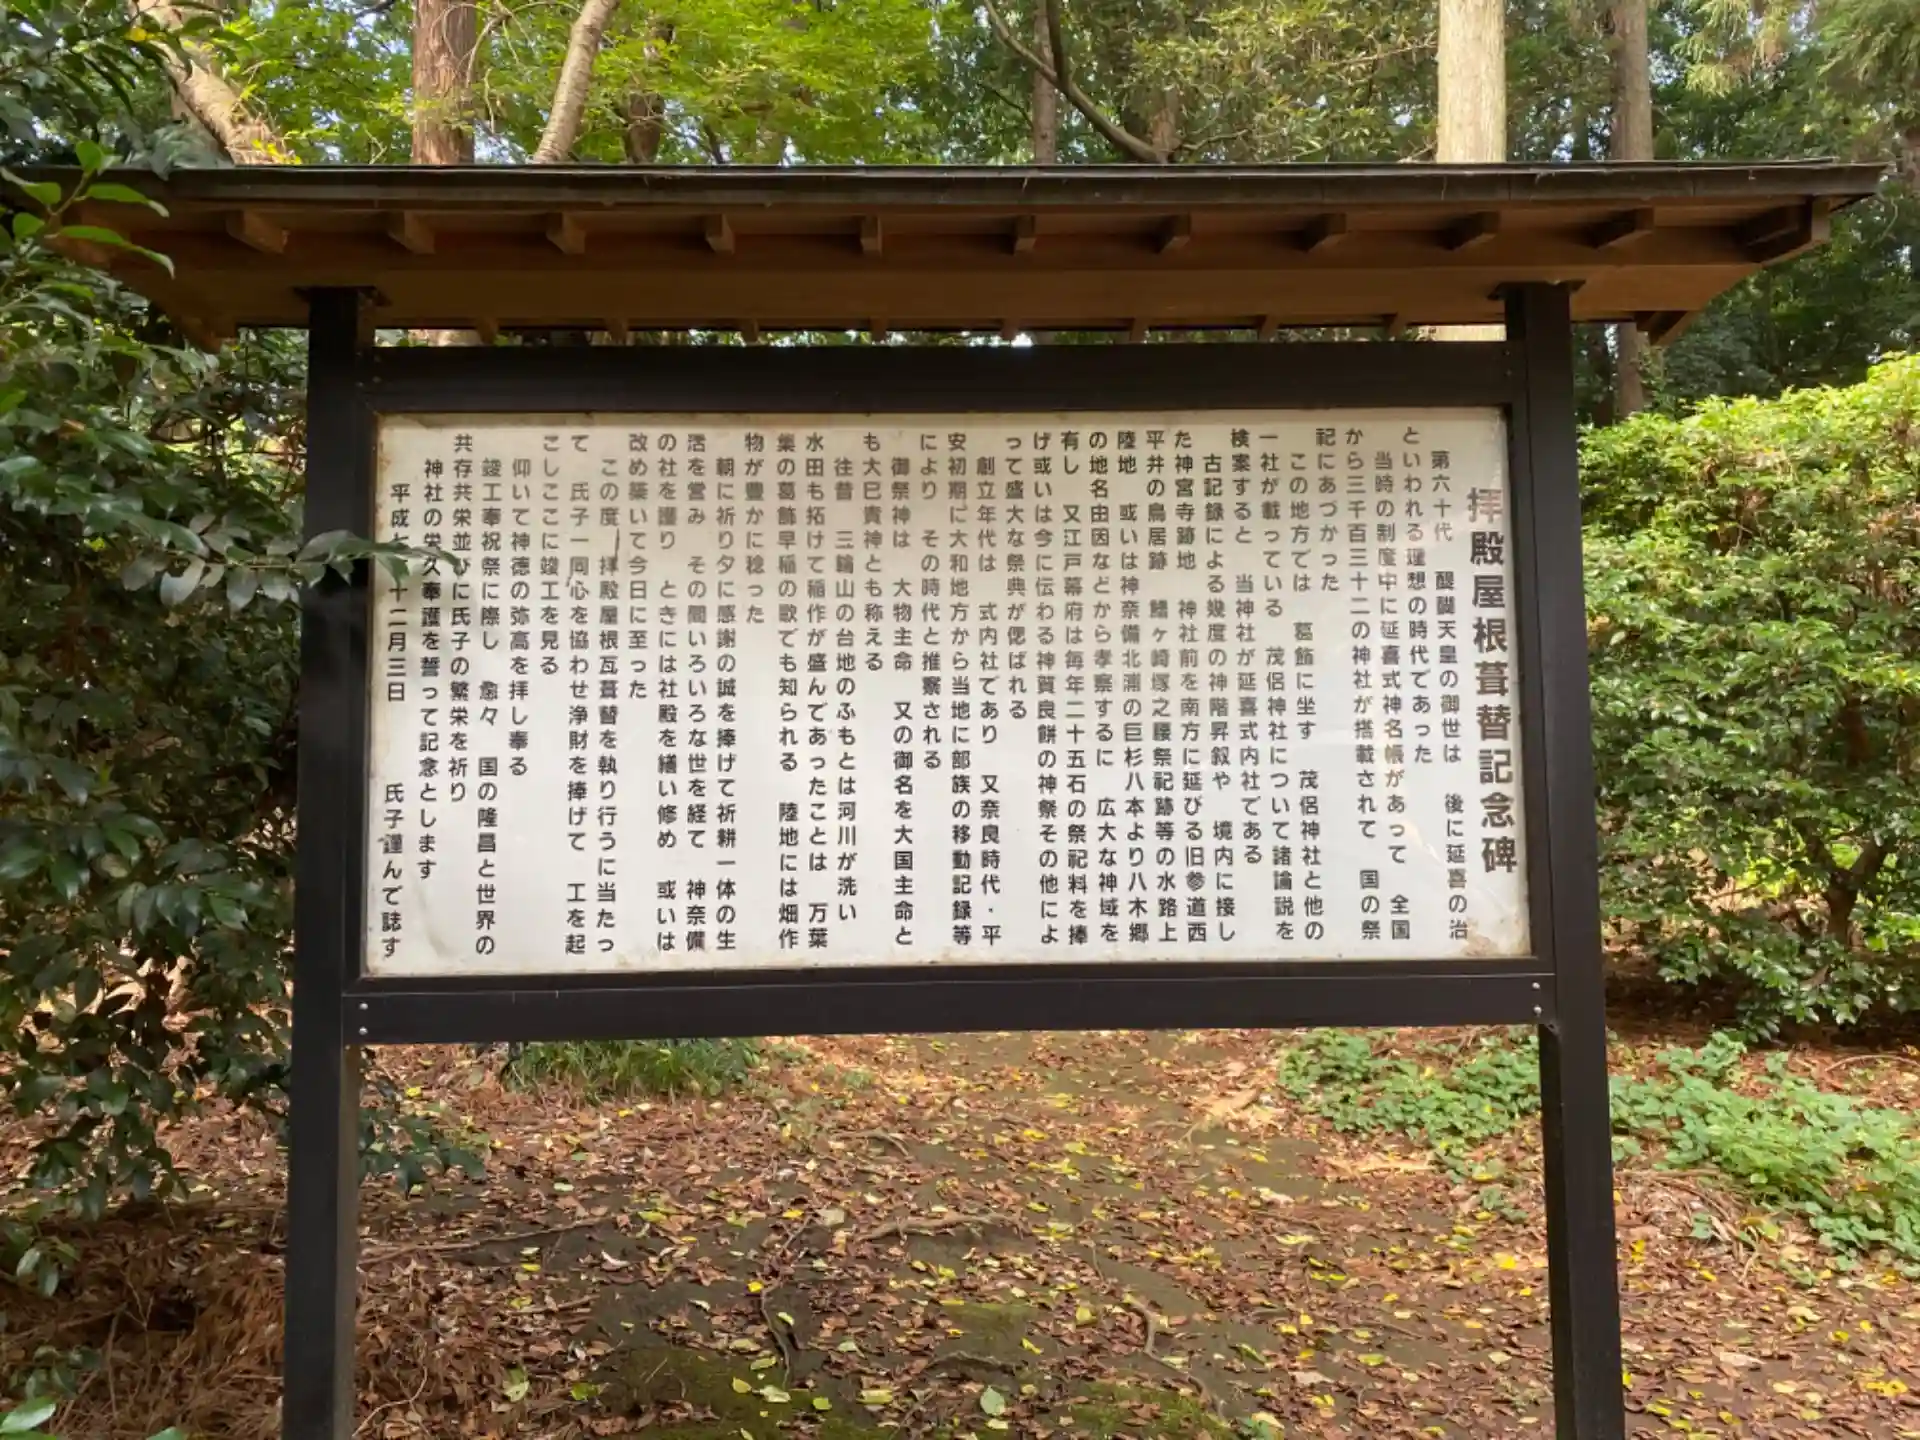 拝殿屋根葺替記念碑
第六十代 醍醐天皇の御世は 後に延喜の治
といわれる理想の時代であった
当時の制度中に延喜式神名帳があって 全国
から三千百三十二の神社が搭載されて 国の祭
祀にあづかった
この地方では 葛飾に坐す 茂侶神社と他の
一社が載っている 茂侶神社について諸論説を
検案すると 当神社が延喜式内社である
古記録による幾度の神階昇叙や 境内に接し
た神宮寺跡地 神社前を南方に延びる旧参道西
平井の鳥居跡 鰭ヶ崎塚之腰祭祀跡等の水路上
陸地 或いは神奈備北浦の巨杉八本より八木郷
の地名由因などから孝察するに 広大な神域を
有し 又江戸幕府は毎年二十五石の祭祀料を捧
げ或いは今に伝わる神賀良餅の神祭その他によ
って盛大な祭典が偲ばれる
創立年代は 式内社であり 又奈良時代・平
安初期に大和地方から当地に部族の移動記録等
により その時代と推察される
御祭神は 大物主命 又の御名を大国主命と
も大巳貴神とも称える
往昔 三輪山の台地のふもとは河川が洗い
水田も拓けて稲作が盛んであったことは 万葉
集の葛飾早稲の歌でも知られる 陸地には畑作
物が豊かに稔った
朝に祈り夕に感謝の誠を捧げて祈耕一体の生
活を営み その間いろいろな世を経て 神奈備
の社を護り ときには社殿を繕い修め 或いは
改め築いて今日に至った
この度 拝殿屋根瓦葺替を執り行うに当たっ
て 氏子一同心を協わせ浄財を捧げて 工を起
こしここに竣工を見る
仰いて神徳の弥高を拝し奉る
竣工奉祝祭に際し 愈々 国の隆昌と世界の
共存共栄並びに氏子の繁栄を祈り
神社の栄久奉護を誓って記念とします
平成七 十二月三日 氏子謹んで誌す